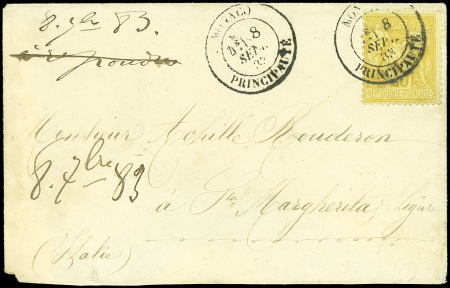 8. 7bre 83.
à répondre
MONACO
8
SEPT
83
PRINCIPAUTÉ
MON
8
SEPT
83
PRINCIPAUTÉ
RÉPUBLIQUE FRANÇAISE
Monsieur Achille Rouderon
8. 7bre 83
à Sta Margherita, Ligure
(Italie)